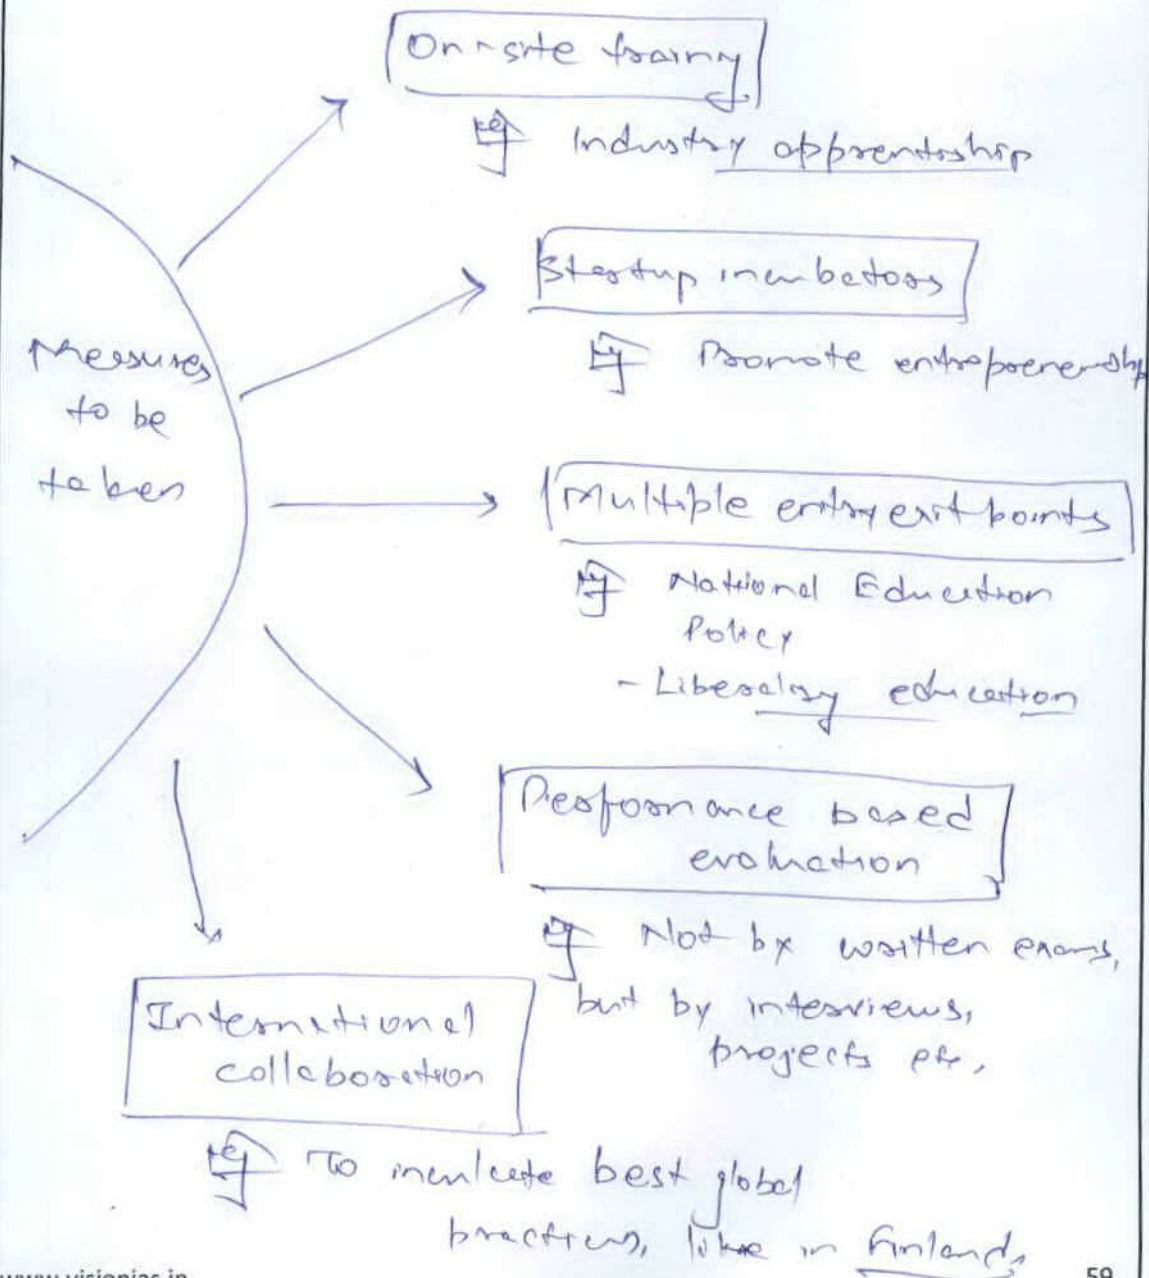 On-site training
Eg Industry apprentiship
Startup incubators
Eg Promote entrepreneurship
Measures
to be
taken
Multiple entry exit points
Eg National Education
Policy
- Liberalizing education
Performance based
evaluation
Eg Not by written exams,
but by interviews,
projects etc,
International
collaboration
Eg To inculcate best global
practices, like in Finland,
www.visionias.in
59